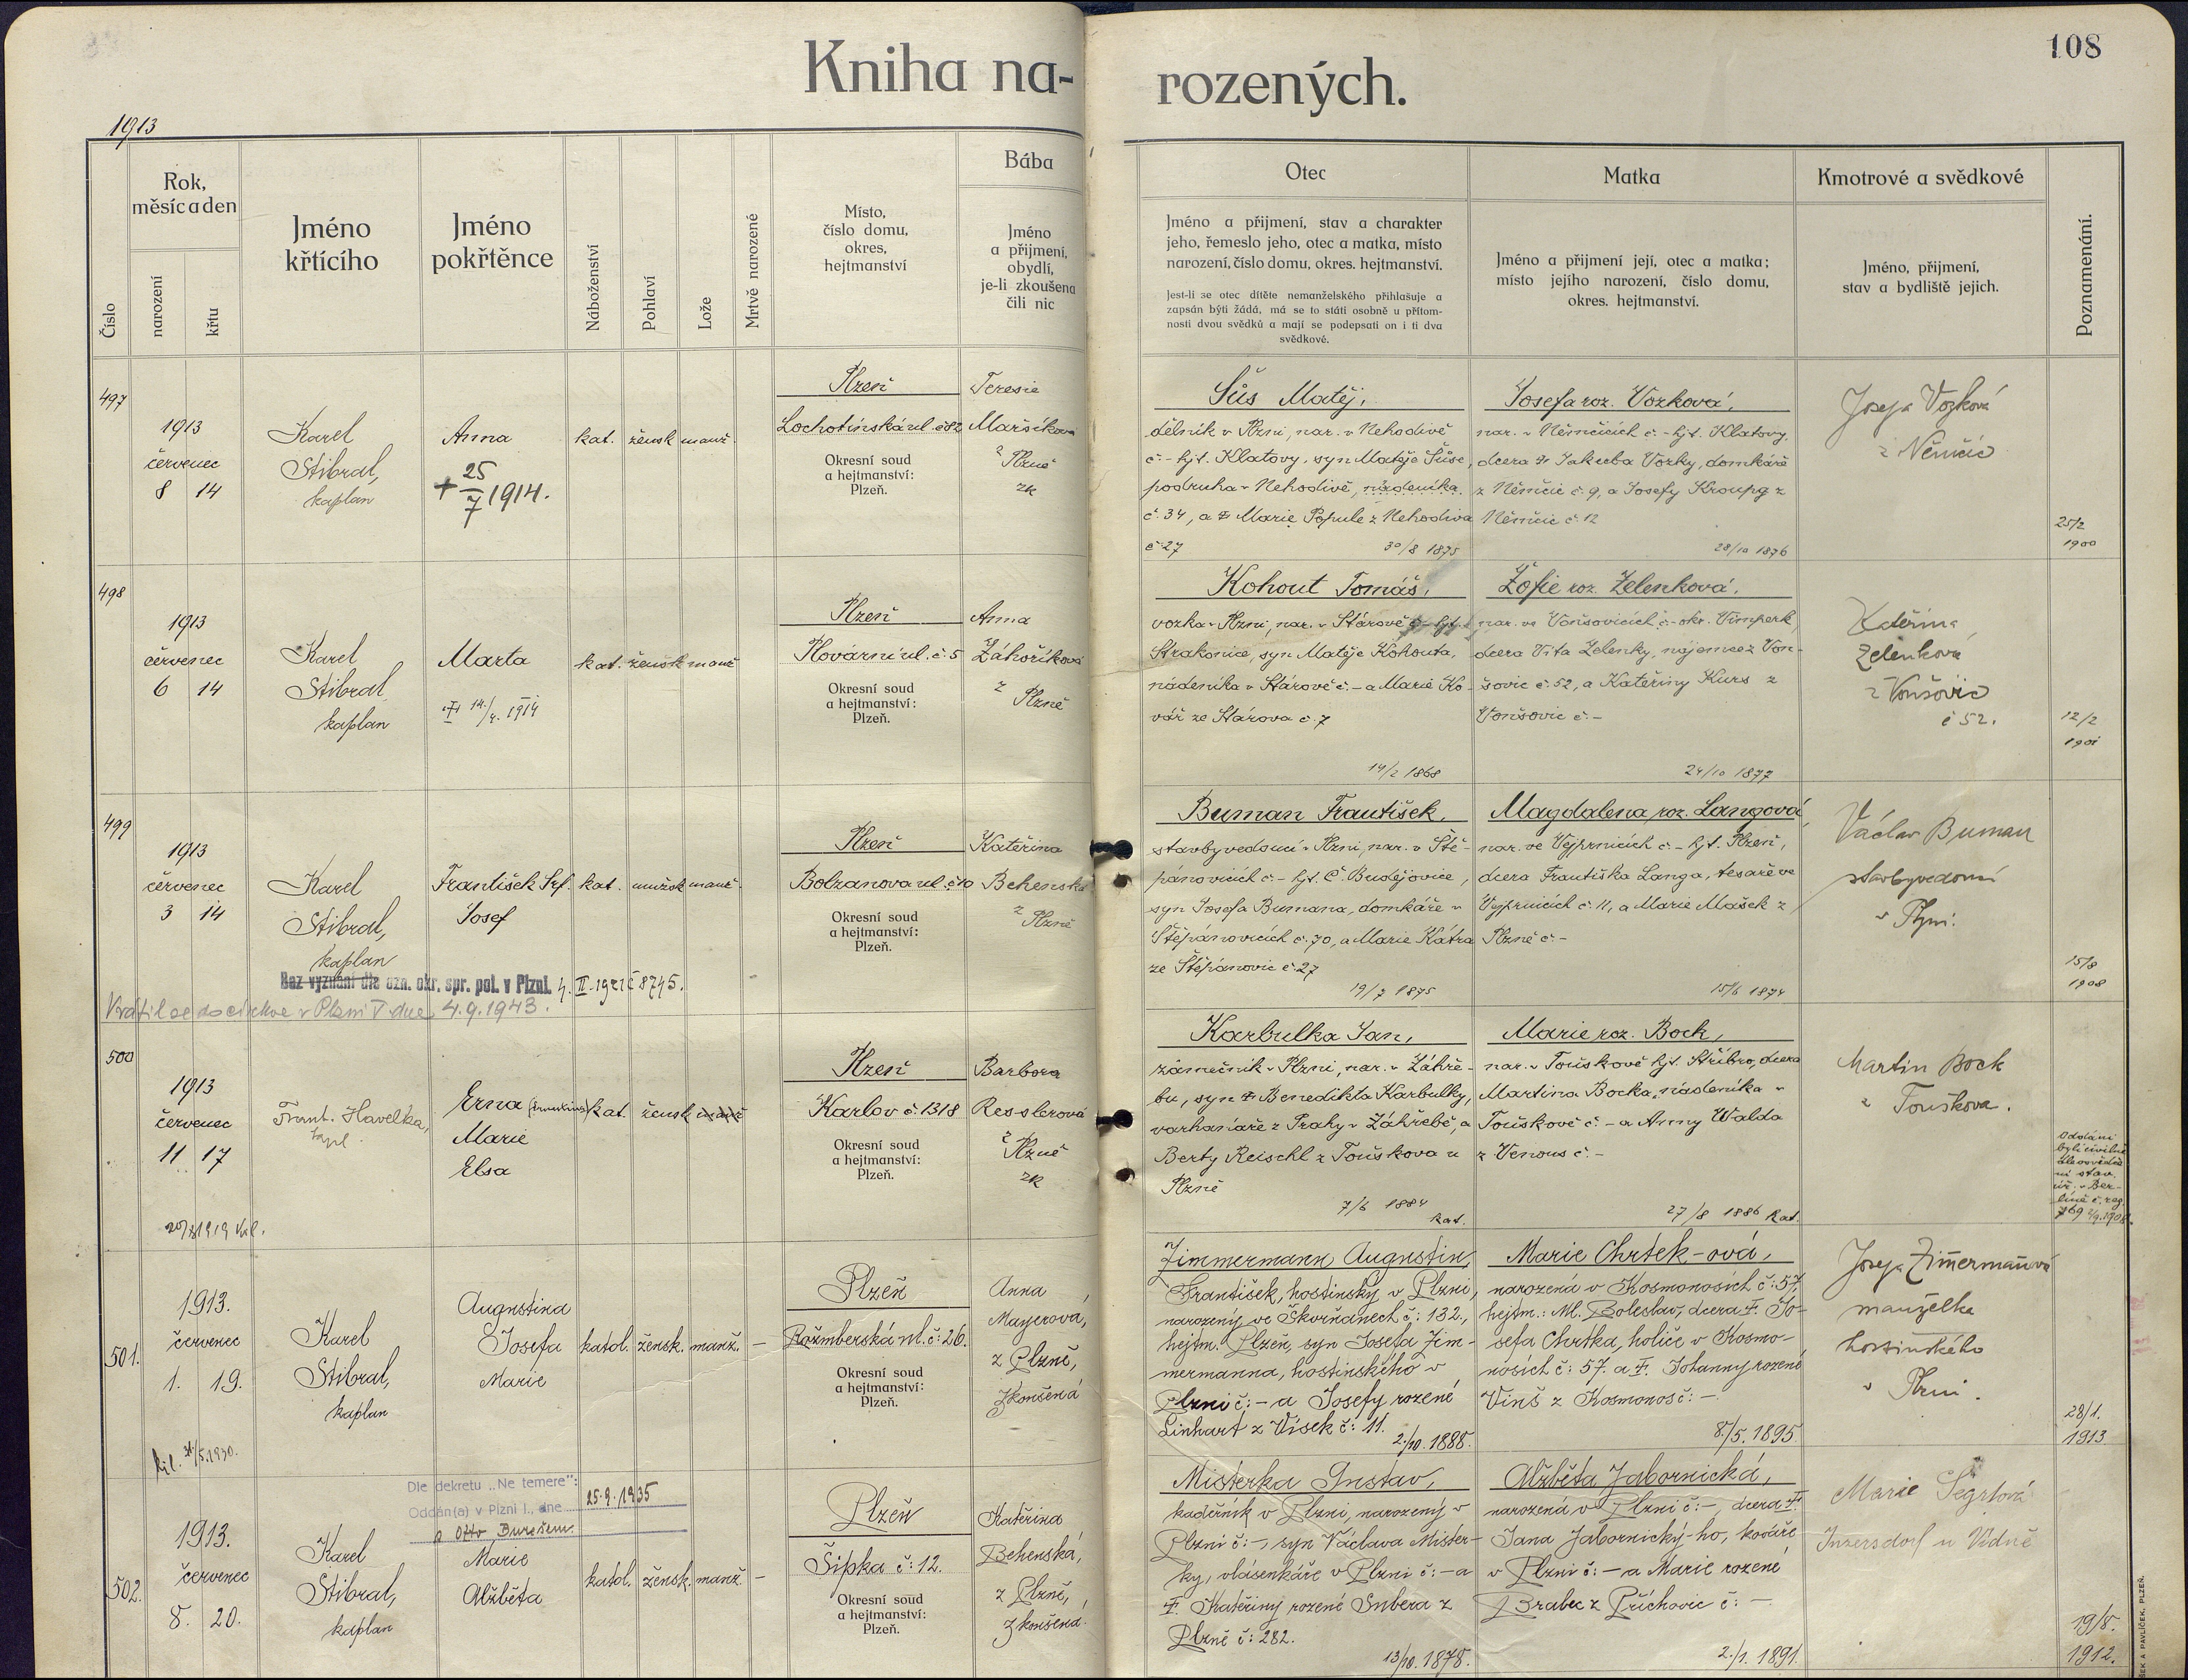 108
Kniha na-rozených.
1913
Číslo
Rok, měsíc a den
narození
křtu
Jméno křtícího
Jméno pokřtěnce
Náboženství
Pohlaví
Lože
Mrtvě narozené
Místo, číslo domu, okres, hejtmanství
Bába
Jméno a přijmení, obydlí, je-li zkoušena čili nic
Otec
Jméno a přijmení, stav a charakter
jeho, řemeslo jeho, otec a matka, místo
narození, číslo domu, okres. hejtmanství.
Jest-li se otec dítěte nemanželského přihlašuje a
zapsán býti žádá, má se to státi osobně u přítom-
nosti dvou svědků a mají se podepsati on i ti dva
svědkové.
Matka
Jméno a přijmení její, otec a matka;
místo jejího narození, číslo domu,
okres. hejtmanství.
Kmotrové a svědkové
Jméno, přijmení,
stav a bydliště jejich.
Poznamenání.
497
1913
červenec
8 14
Karel
Stibral,
kaplan
Anna
+ 25/7 1914.
kat. žensk manž.
Plzeň
Lochotínská ul. č 82
Okresní soud
a hejtmanství:
Plzeň.
Teresie
Maršíková
z Plzně
zk
Šůs Matěj,
dělník v Plzni, nar. v Nehodivě
č - hjt. Klatovy, syn Matěje Šůse,
podruha v Nehodivě, nádeníka
č. 34, a Marie Popule z Nehodiva
č 27
30/8 1875
Josefa roz. Vozková,
nar. v Němčicích č. - hjt. Klatovy,
dcera Jakuba Vozky, domkáře
z Němčic č. 9, a Josefy Kroupa z
Němčic č. 12
28/10 1876
Josefa Vozková
z Němčic
25/2
1900
498
1913
červenec
6 14
Karel
Stibral
kaplan
Marta
14/4. 1914
kat. žensk manž
Plzeň
Plovární ul. č. 5
Okresní soud
a hejtmanství:
Plzeň.
Anna
Záhoříková
z Plzně
Kohout Tomáš,
vozka v Plzni, nar. v Stárově č - hjt.
Strakonice, syn Matěje Kohouta,
nádeníka v Stárově č. - a Marie Ko-
vář ze Stárova č. 7
14/2 1868
Žofie roz. Zelenková,
nar. ve Vonšovicích č. - okr. Vimperk,
dcera Víta Zelenky, nájemce z Von-
šovic č. 52, a Kateřiny Kurs z
Vonšovic č. -
24/10 1877
Kateřina
Zelenková
z Vonšovic
č 52.
12/2
1901
499
1913
červenec
3 14
Karel
Stibral,
kaplan
František Srf.
Josef
kat. mužsk manž.
Plzeň
Bolzanova ul. č. 10
Okresní soud
a hejtmanství:
Plzeň.
Kateřina
Behenská
z Plzně
Bez vyznání dle ozn. okr. spr. pol. v Plzni. 4. II. č 8745.
Vrátil se do církve v Plzni V. dne 4.9.1943.
Buman František,
stavbyvedoucí v Plzni, nar. v Ště-
pánovicích č - hjt. Č. Budějovice,
syn Josefa Bumana, domkáře v
Štěpánovicích č. 70, a Marie Kátra
ze Štěpánovic č. 27
19/7 1875
Magdalena roz. Langová,
nar. ve Vejprnicích č - hjt. Plzeň,
dcera Františka Langa, tesaře ve
Vejprnicích č. 11, a Marie Mašek z
Plzně č. -
15/6 1874
Václav Buman
stavbyvedoucí
v Plzni.
15/8
1908
500
1913
červenec
11 17
Frant. Havelka,
kapl.
Erna
Marie
Elsa
kat. žensk manž
Plzeň
Karlov č. 1318
Okresní soud
a hejtmanství:
Plzeň.
Barbora
Resslerová
z Plzně
zk
Karbulka Jan,
zámečník v Plzni, nar. v Záhře-
bu, syn Benedikta Karbulky,
varhanáře z Prahy v Záhřebě, a
Berty Reischl z Touškova u
Plzně
7/6 1884
kat.
Marie roz. Bock,
nar. v Touškově hjt. Stříbro, dcera
Martina Bocka, nádeníka v
Touškově č. - a Anny Walda
z Venous č. -
27/8 1886 kat.
Martin Bock
z Touškova.
Oddáni
byli civilně
dle osvědče
ní stav.
úř. v Ber-
líně č. reg
501.
1913.
červenec
1. 19.
Karel
Stibral,
kaplan
Augustina
Josefa
Marie
katol. žensk. manž. -
Plzeň
Rožmberská ul. č: 26.
Okresní soud
a hejtmanství:
Plzeň.
Anna
Mayerová,
z Plzně,
zkoušená
Zimmermann Augustin,
František, hostinský v Plzni,
narozený ve Škvrňanech č: 132,
hejtm. Plzeň, syn Josefa Zim-
mermanna, hostinského v
Plzni č: - a Josefy rozené
Linhart z Vísek č: 11.
2./10. 1888.
Marie Chrtek-ová,
narozená v Kosmonosích č: 57,
hejtm.: Ml. Boleslav, dcera Jo-
sefa Chrtka, holiče v Kosmo-
nosích č: 57. a Johanny rozené
Vinš z Kosmonos č: -
8./5. 1895.
Josefa Zimermanová
manželka
hostinského
v Plzni.
28/1.
1913
502.
1913.
červenec
8. 20.
Karel
Stibral,
kaplan
Dle dekretu „Ne temere":
Oddán(a) v Plzni I., dne 25.9.1935
s Otto Burešem
Marie
Alžběta
katol. žensk. manž. -
Plzeň
Šipka č: 12.
Okresní soud
a hejtmanství:
Plzeň.
Kateřina
Behenská,
z Plzně,
zkoušená.
Misterka Gustav,
kadeřník v Plzni, narozený v
Plzni č: -, syn Václava Mister-
ky, vlásenkáře v Plzni č: - a
Kateřiny rozené Subera z
Plzně č: 282.
13/10. 1878.
Alžběta Jabornická,
narozená v Plzni č: -, dcera
Jana Jabornický-ho, kováře
v Plzni č: - a Marie rozené
Brabec z Příchovic č: -.
2./1. 1891.
Marie Šégrtová
Inzersdorf u Vídně
19/8.
1912.